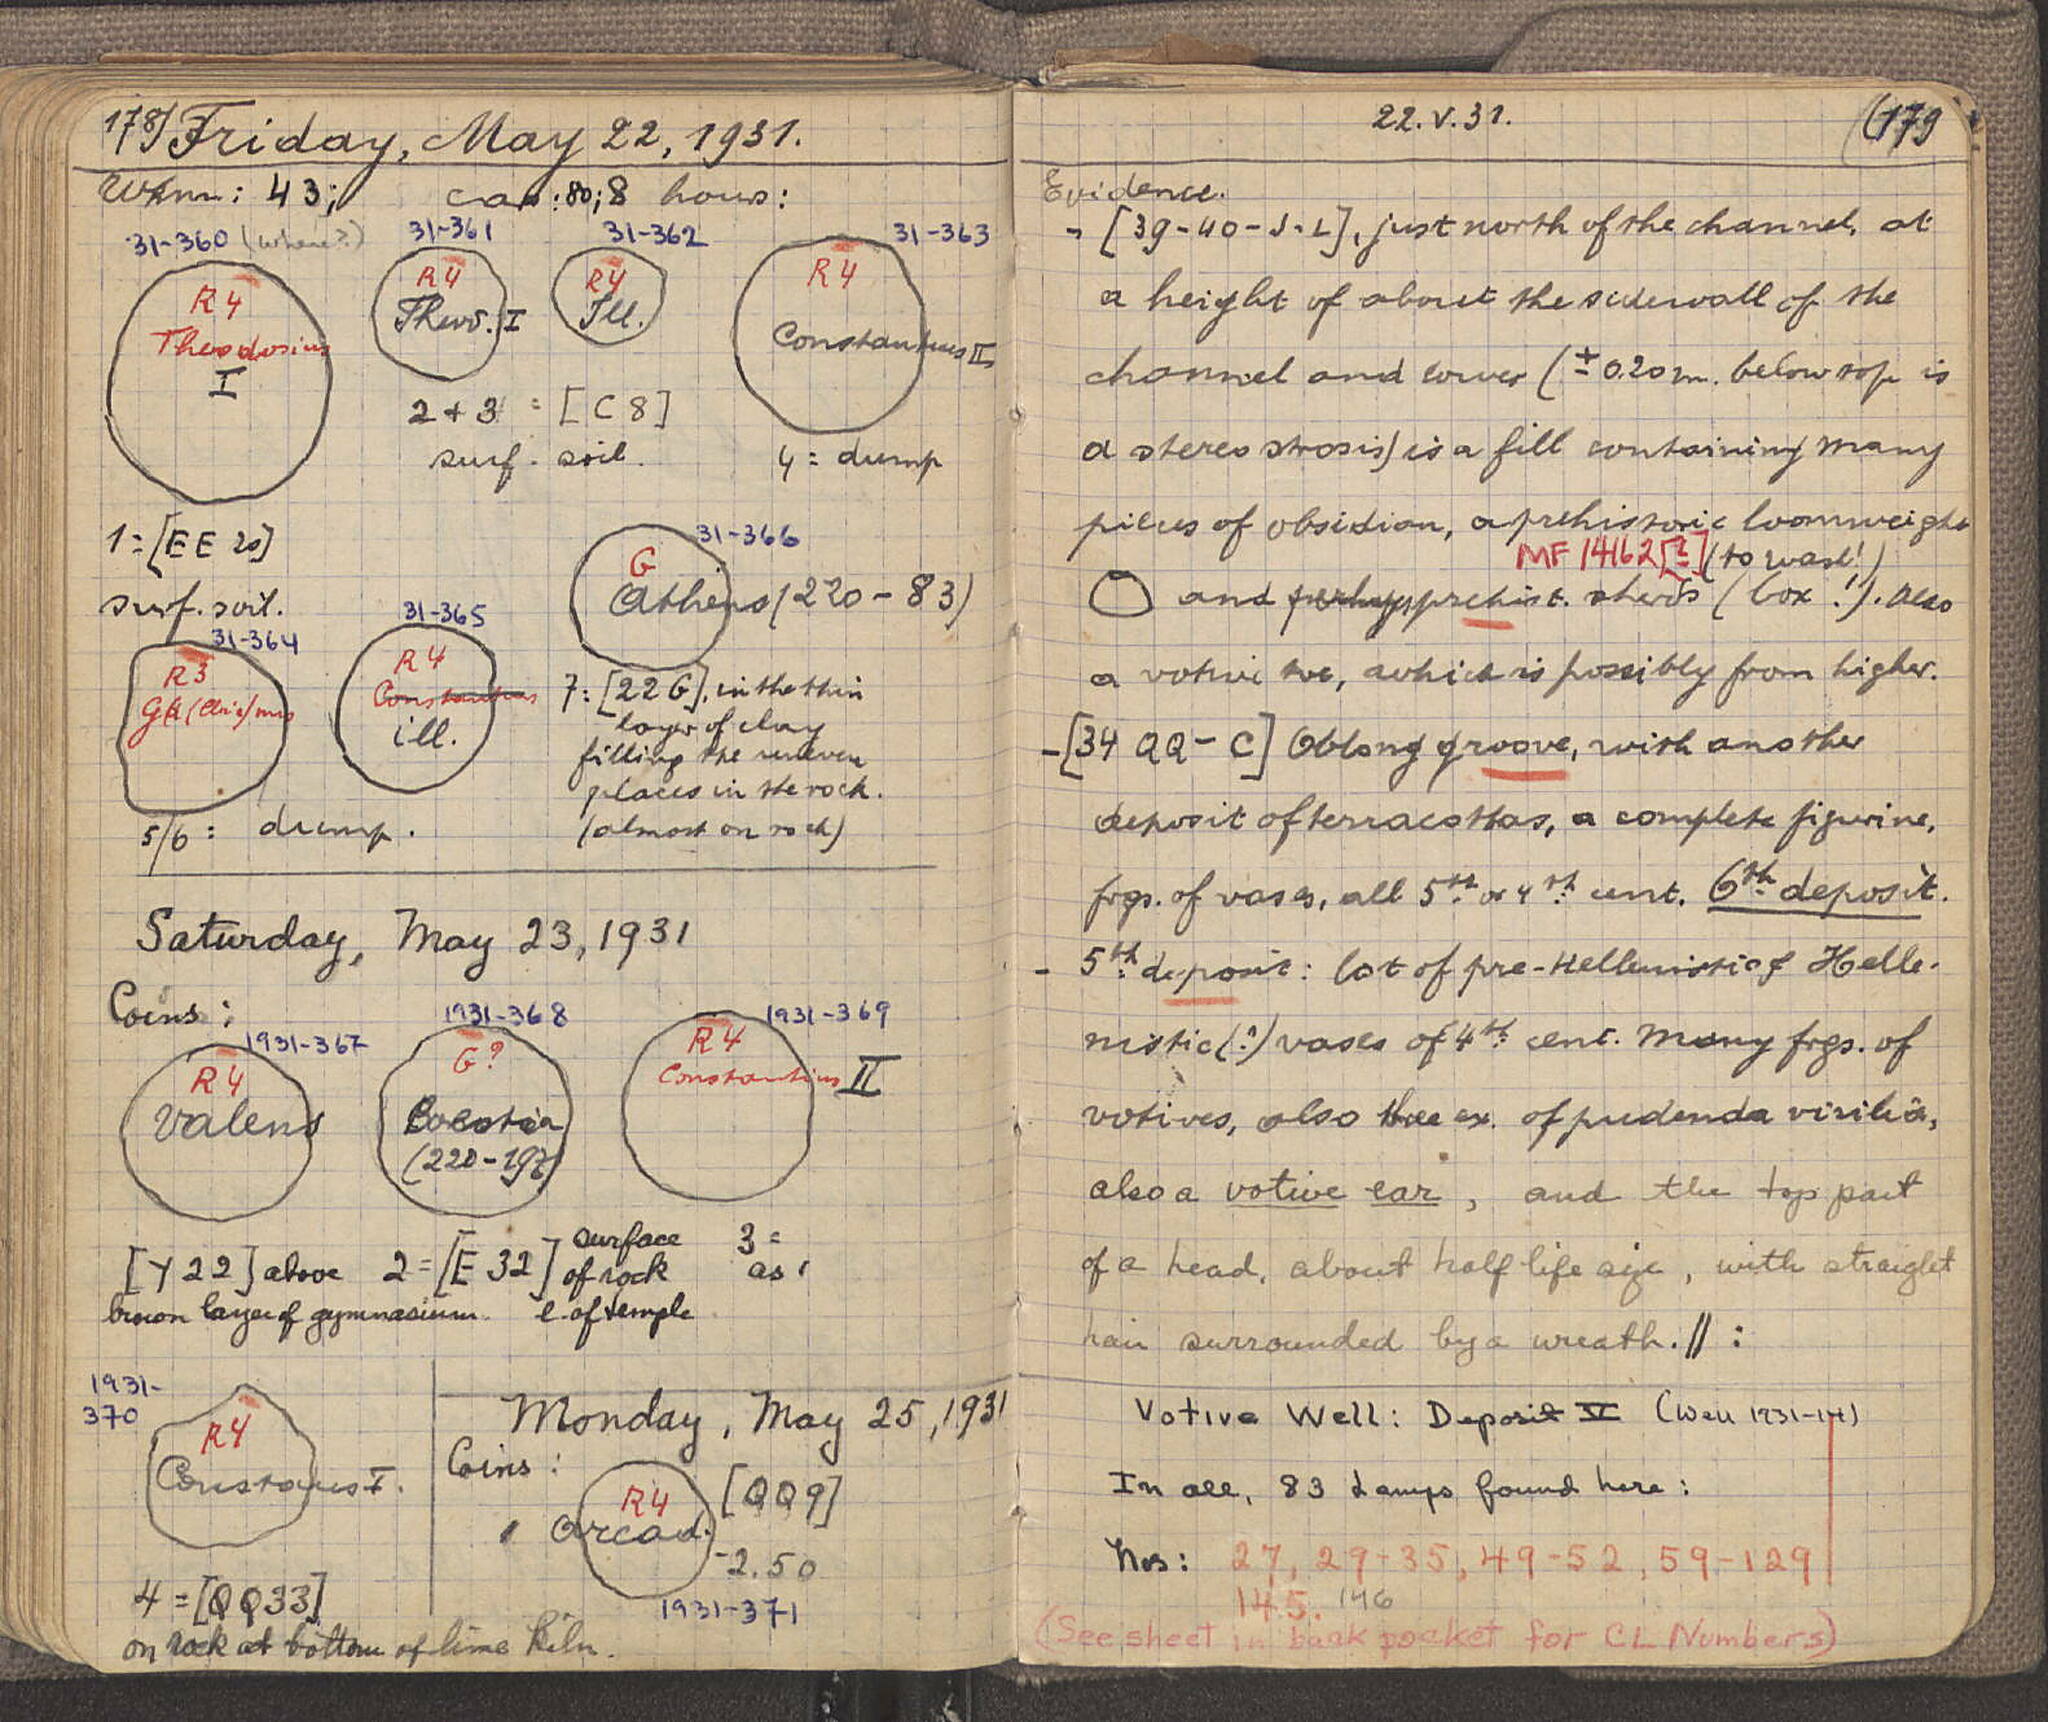 178) Friday, May 22, 1931.
43; 80; 8 hours:
31-360 (where?) 31-361 31-362 31-363
R4 Theodosius I
R4 Theod. I
R4 Ill.
R4 Constantius II
2 + 3 = [C 8]
surf. soil.
4 = dump
1 = [EE 20]
surf. soil.
31-364
R3
31-365
R4
Constantius
ill.
5/6 : dump.
31-366
G
Athens (220 - 83)
7: [22 G], in the thin
layer of clay
filling the uneven
places in the rock.
(almost on rock)
Saturday, May 23, 1931
Coins :
1931-367 1931-368 1931-369
R4 Valens
G? Boeotia (220-197)
R4 Constantius II
[Y 22] above
brown layer of gymnasium.
2 = [E 32] surface
of rock
e. of temple
3 =
as 1
1931-
370
R4
Constans I.
4 = [QQ33]
on rock at bottom of lime kiln.
Monday, May 25, 1931
Coins :
1 R4 Arcad. [QQ9]
-2.50
1931-371
22.V.31. (179
Evidence.
- [39-40-J-L], just north of the channel, at
a height of about the sidewall of the
channel and lower (± 0.20 m. below top is
a stereo strosis) is a fill containing many
pieces of obsidian, a prehistoric loomweight
MF 14162[?] (to wash!)
and perhaps prehist. sherds (box !). Also
a votive toe, which is possibly from higher.
- [34 QQ - C] Oblong groove, with another
deposit of terracottas, a complete figurine,
frgs. of vases, all 5th or 4th cent. 6th deposit.
- 5th deposit : lot of pre-Hellenistic & Helle-
nistic (?) vases of 4th cent. Many frgs. of
votives, also three ex. of pudenda virilia,
also a votive ear, and the top part
of a head, about half life size, with straight
hair surrounded by a wreath. // :
Votive Well: Deposit V (Well 1931-14)
In all, 83 Lamps found here :
Nos : 27, 29-35, 49-52, 59-129
145. 146
(See sheet in back pocket for CL Numbers)